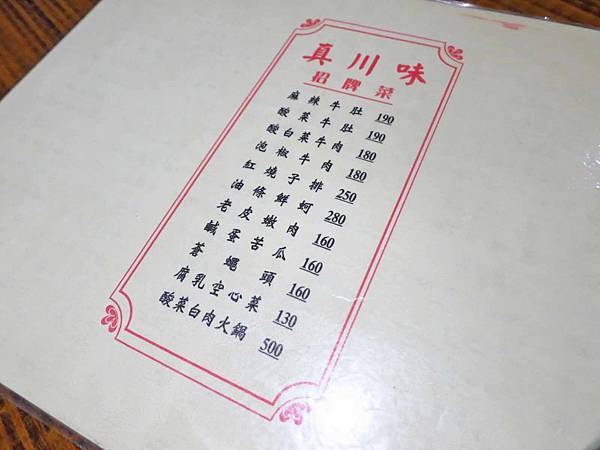 真川味
招牌菜
麻辣牛肚 190
酸菜牛肚 190
酸白菜牛肉 180
泡椒牛肉 180
紅燒子排 250
油條鮮蚵 280
老皮嫩肉 160
鹹蛋苦瓜 160
蒼蠅頭 160
腐乳空心菜 130
酸菜白肉火鍋 500